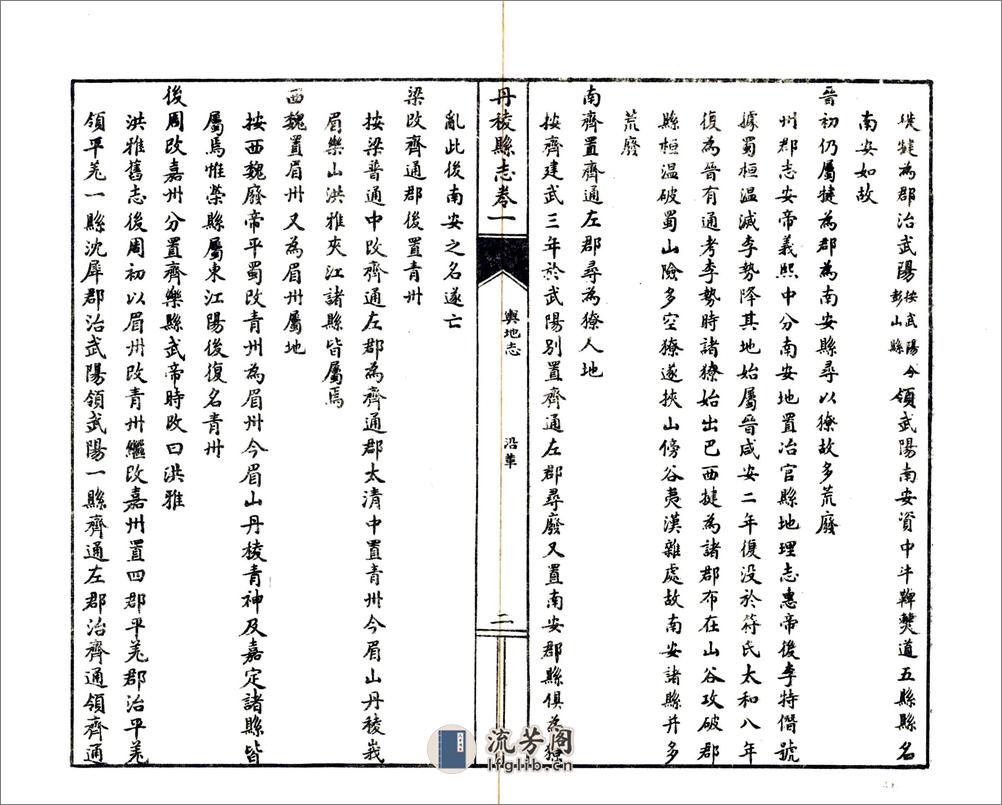 犍為郡治武陽按武陽今彭山縣領武陽南安資中牛鞞僰道五縣縣名
南安如故
晉初仍屬犍為郡為南安縣尋以獠故多荒廢
州郡志安帝義熙中分南安地置冶官縣地理志惠帝後李特僭號
據蜀桓温滅李勢降其地始屬晉咸安二年復没於苻氏太和八年
復為晉有通考李勢時諸獠始出巴西犍為諸郡布在山谷攻破郡
縣桓温破蜀山險多空獠遂挾山傍谷夷漢雜處故南安諸縣并多
荒廢
南齊置齊通左郡尋為獠人地
按齊建武三年於武陽别置齊通左郡尋廢又置南安郡縣俱為獠
丹稜縣志卷一
輿地志
沿革
二
亂此後南安之名遂亡
梁改齊通郡後置青州
按梁普通中改齊通左郡為齊通郡太清中置青州今眉山丹稜峩
眉樂山洪雅夾江諸縣皆屬焉
西魏置眉州又為眉州屬地
按西魏廢帝平蜀改青州為眉州今眉山丹稜青神及嘉定諸縣皆
屬焉惟榮縣屬東江陽後復名青州
後周改嘉州分置齊樂縣武帝時改曰洪雅
洪雅舊志後周初以眉州改青州繼改嘉州置四郡平羌郡治平羌
領平羌一縣沈犀郡治武陽領武陽一縣齊通左郡治齊通領齊通
流芳阁
lfglib.cn